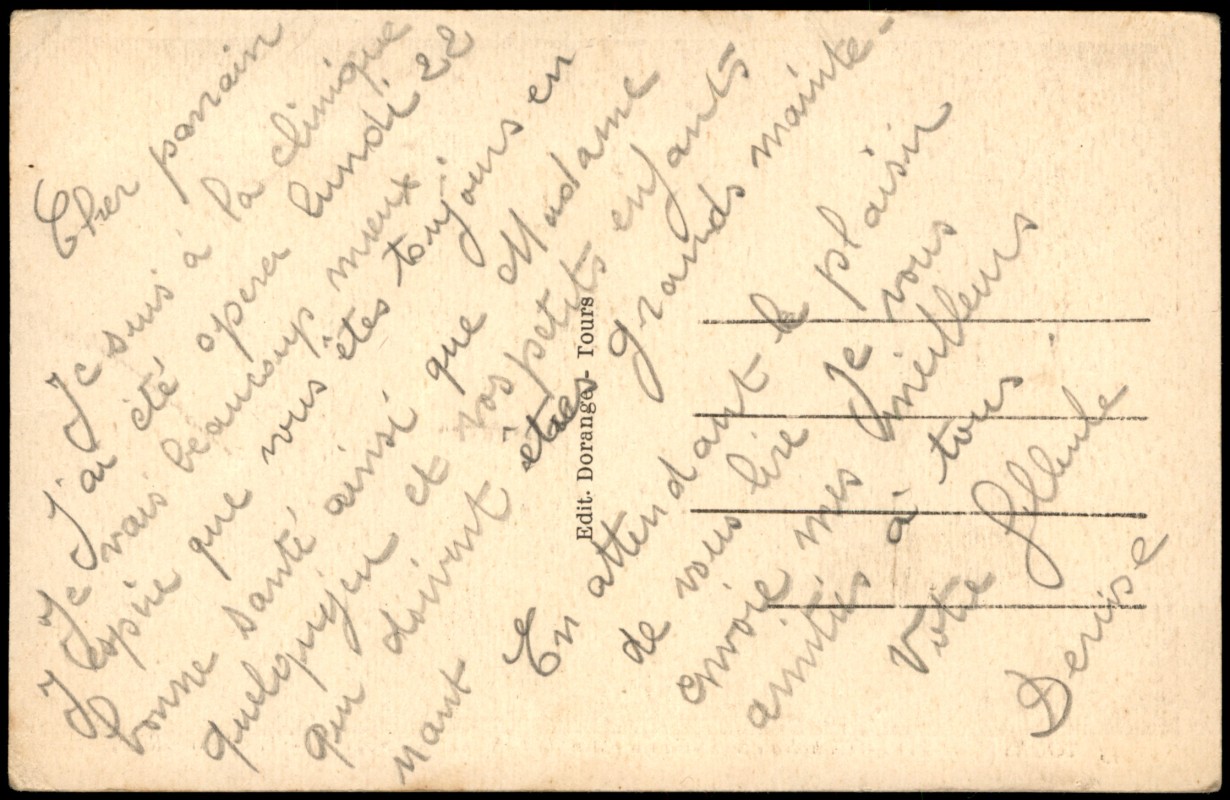 Cher parrain
Je suis à la clinique
J'ai été opérer lundi 22
Je vais beaucoup mieux
J'espère que vous êtes toujours en
bonne santé ainsi que Madame
quelqujeu et vos petits enfants
qui doivent être grands mainte-
nant
En attendant le plaisir
de vous lire Je vous
envoie mes meilleurs
amitiés à tous.
Votre filleule
Denise
Edit. Dorange - Tours